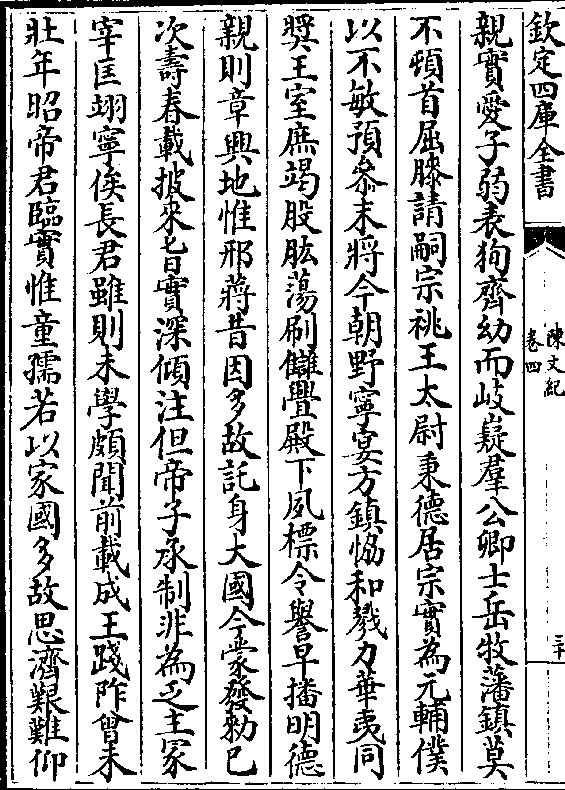 欽定四庫全書
陳文紀
卷四
三十
親實愛子弱表狥齊幼而岐嶷羣公卿士岳牧藩鎮莫
不頓首屈膝請嗣宗祧王太尉秉德居宗實為元輔僕
以不敏預叅末將今朝野寧宴方鎮恊和戮力華夷同
奬王室庶竭股肱蕩刷讎釁殿下夙標令譽早播明德
親則章興地惟邢蔣昔因多故託身大國今蒙發勑已
次壽春載披來㫖實深傾注但帝子承制非為乏主冢
宰匡翊寧俟長君雖則未學頗聞前載成王踐阼曾未
壯年昭帝君臨實惟童孺若以家國多故思濟艱難仰